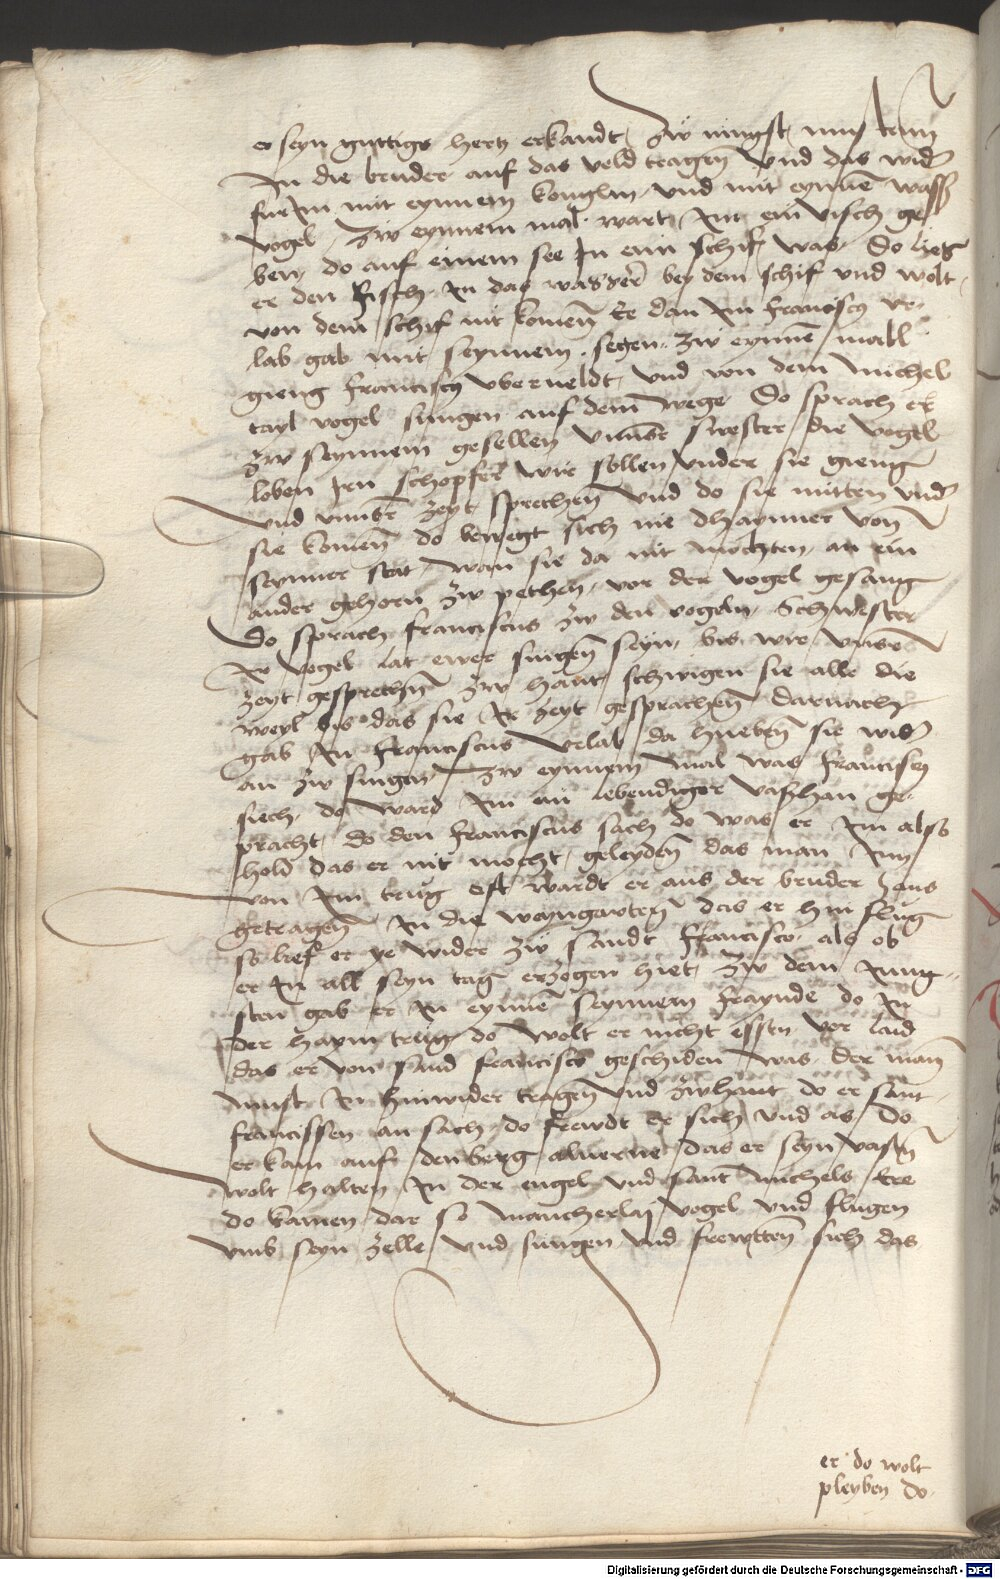 er seyn guttigs hertz erkandt / zw iungst must man
Jn die bruder auf das veld tragen vnd das wider
fur Jm mit eynnem konglin / vnd mit eynnem wasser
vogel / Zw eynnem mal wart Jm ein visch ge
ben / do auf einem see Jn eim schif was / Do lies
er den fisch Jn das wasser bey dem schif vnd wolt
von dem schif nit komen Ee dan Jm franciscus vr
lab gab mit seynnem segen / Zw eynnem mall
gieng franciscus vberueldt / vnd von dem michel
tayl vogel sungen auf dem wege / Do sprach er
zw seynnem gesellen vnnser swester die vogel
loben Jrn schopfer wir sollen vnder sie gieng
vnd vnnser zeyt sprechen vnd do sie mitten vnder
sie komen do bewegt sich nie dhaynner von
seynner stat / wan sie da nit mochten an ein
ander gehorn zw pethen / vor der vogel gesang
Do sprach franciscus zw den vogeln / Schwester
Jr vogel lat ewer singen seyn / bis wir vnser
zeyt gesprechen zw hant schwigen sie alle die
weyl bis das sie Jr zeyt gesprachen darnach
gab Jn franciscus vrlab da hueben sie wider
an zw singen / Zw eynnem mal was franciscus
siech / do ward Jm ein lebendiger vashan ge
pracht / do den franciscus sach do was er Jm also
hold das er nit mocht geleyden das man Jnn
von Jm trug oft wardt er aus der bruder haus
getragen Jn die weyngarten das er hin flug
so lief er ye wider zw sandt francisco / als ob
er Jn all seyn tag erzogen hiet / Zw dem Jung
sten gab er Jn eynnem seynnem fraynde do Jn
der haym trug / do wolt er nicht essen vor laid
das er von sand francisco geschiden was / der man
must Jn hinwider tragen vnd zwhant do er sant
francissen an sach / do frewdt er sich vnd as / Do
er kam auf den berg aluerne das er seyn vasten
wolt halten Jn der engel vnd sant michels ere
do kamen dar so mancherlaj vogel vnd flugen
vmb seyn zelle vnd sungen vnd frewtten sich das
er do wolt
pleyben do
Digitalisierung gefördert durch die Deutsche Forschungsgemeinschaft - DFG